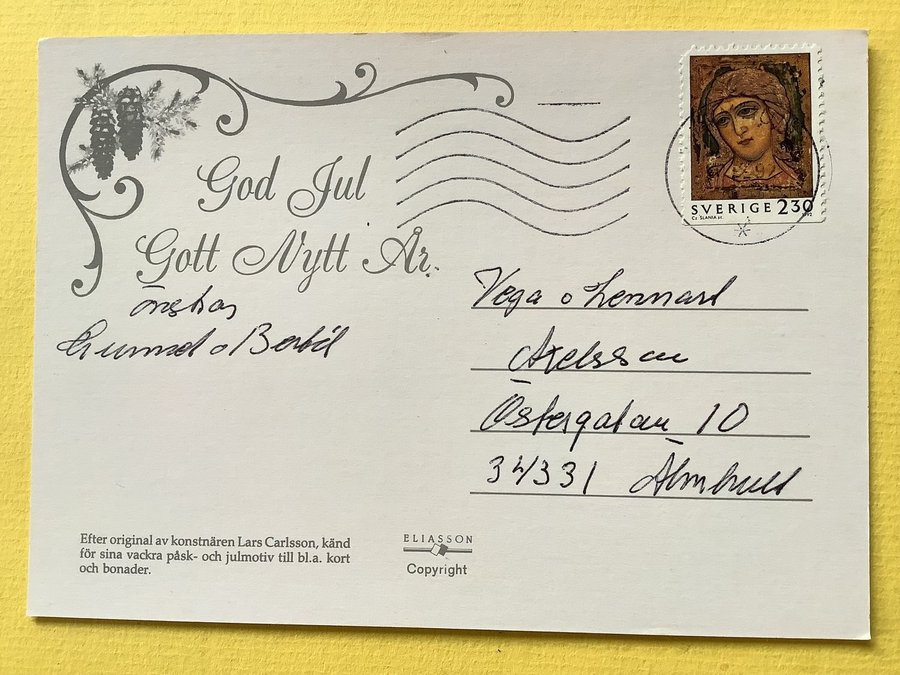 God Jul
Gott Nytt År.
önskar
Gunnel o Bertil
SVERIGE 230
Cz. SLANIA sc. 1992
Vega o Lennart
Axelsson
Östergatan 10
34331 Älmhult
Efter original av konstnären Lars Carlsson, känd
för sina vackra påsk- och julmotiv till bl.a. kort
och bonader.
ELIASSON
Copyright